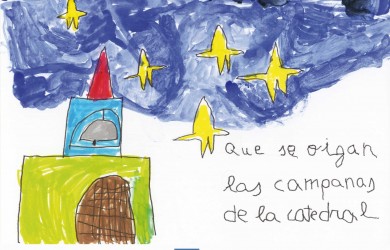 que se oigan
las campanas
de la catedral